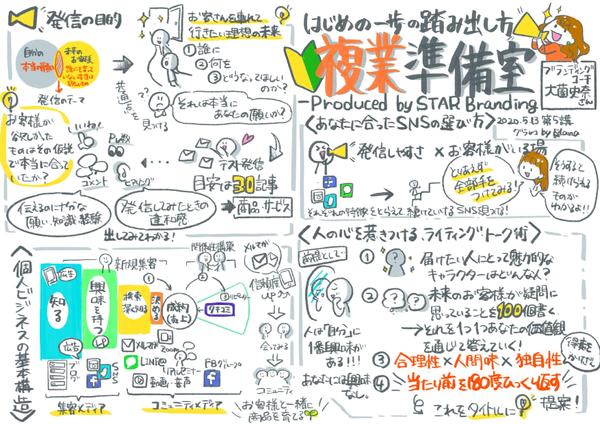 はじめの一歩の踏み出し方
複業準備室
-Produced by STAR Branding
ブランディング
コーチ
大薗史奈
さん
2020.5.13 第5講
発信の目的
自分の
本当の願い
お客さんを連れて
行きたい理想の未来
①誰に
②何を
③どうなってほしい
のか?
それは本当に
あなたの願いか?
共通点を
見つける
発信のテーマ
お客様が
欲しかった
ものはその仮説
で本当に合って
いたか?
いいね!
PV数
コメント
ヒアリング
テスト発信
目安は30記事
伝えるのにナチュラルな
願い・知識・経験
発信してみたときの
違和感
商品・サービス
出してみてわかる!
<あなたに合ったSNSの選び方>
発信しやすさ × お客様がいる場
とりあえず
全部手を
つけてみる!!
そうすると
続けられる
ものが
わかるよ!!
それぞれの特徴をとらえて続けていけるSNS見つけ!
<人の心を惹きつけるライティング・トーク術>
前提として
人は「自分」に
1番興味が
ある!!!
あなたには興味
なし。
①届けたい人にとって魅力的な
キャラクターはどんな人?
②未来のお客様が疑問に
思っていることを100個書く
→それを1つ1つあなたの価値観
を通じて答えていく!
③合理性×人間味×独自性
④当たり前を180度ひっくり返す
これをタイトルに
提案!
<個人ビジネスの基本構造>
新規集客
関係性構築
広告
知る
興味を持つ
LP
検索
深く知る
決める
成約
(売上)
クチコミ
リピート
メルマガ
信頼度
UP
会ってみる
コミュニティ
広告
ブログ
SNS
メルマガ
LINE@
Zoom
動画・音声
FBグループ
集客メディア
コミュニティメディア
お客様と一緒に
商品を育てる